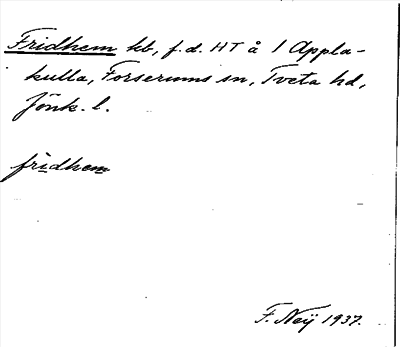 Fridhem kb, f.d. HT å 1 Appla-
kulla, Forserums sn, Tveta hd,
Jönk. l.
fridhem
F. Neij 1937.